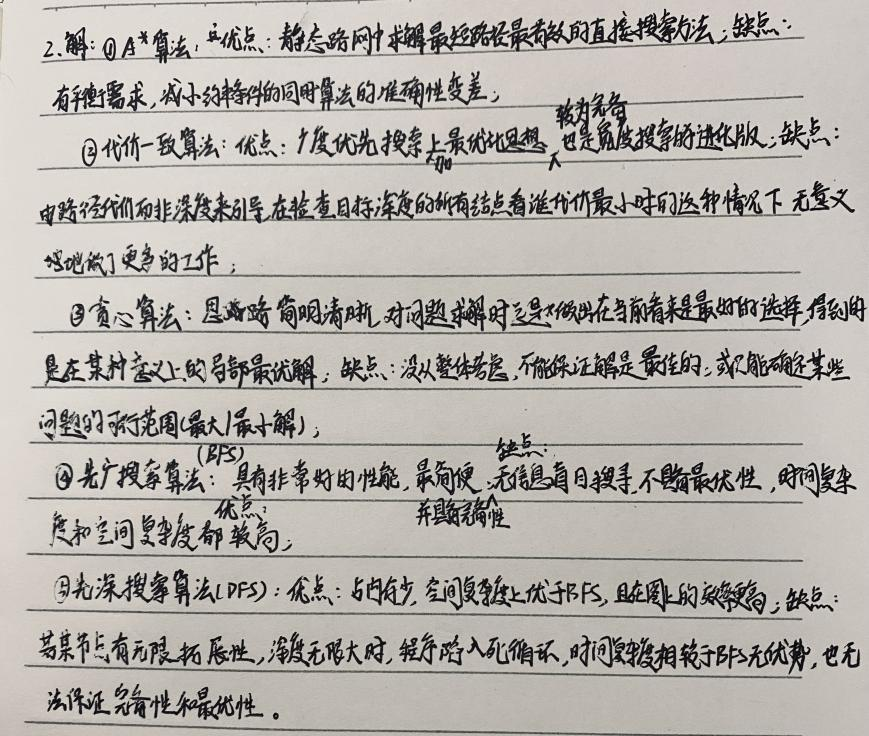 2.解：①A*算法：优点：静态路网中求解最短路径最有效的直接搜索方法；缺点：
有平衡需求，减小约束条件的同时算法的准确性变差；
②代价一致算法：优点：广度优先搜索上加最优化思想，较为完备也是宽度搜索的进化版；缺点：
由路径代价而非深度来引导，在检查目标深度的所有结点看谁代价最小时的这种情况下 无意义
地做了更多的工作；
③贪心算法：思路简明清晰，对问题求解时总是做出在当前看来是最好的选择，得到的
是在某种意义上的局部最优解；缺点：没从整体考虑，不能保证解是最佳的；或只能确定某些
问题的可行范围(最大/最小解)；
④先广搜索算法(BFS)：优点：具有非常好的性能，最简便，并具有完备性；缺点：无信息盲目搜寻，不具备最优性，时间复杂
度和空间复杂度都较高；
⑤先深搜索算法(DFS)：优点：占内存少，空间复杂度上优于BFS，且在图上的效率更高；缺点：
若某节点有无限拓展性，深度无限大时，程序陷入死循环，时间复杂度相较于BFS无优势，也无
法保证完备性和最优性。